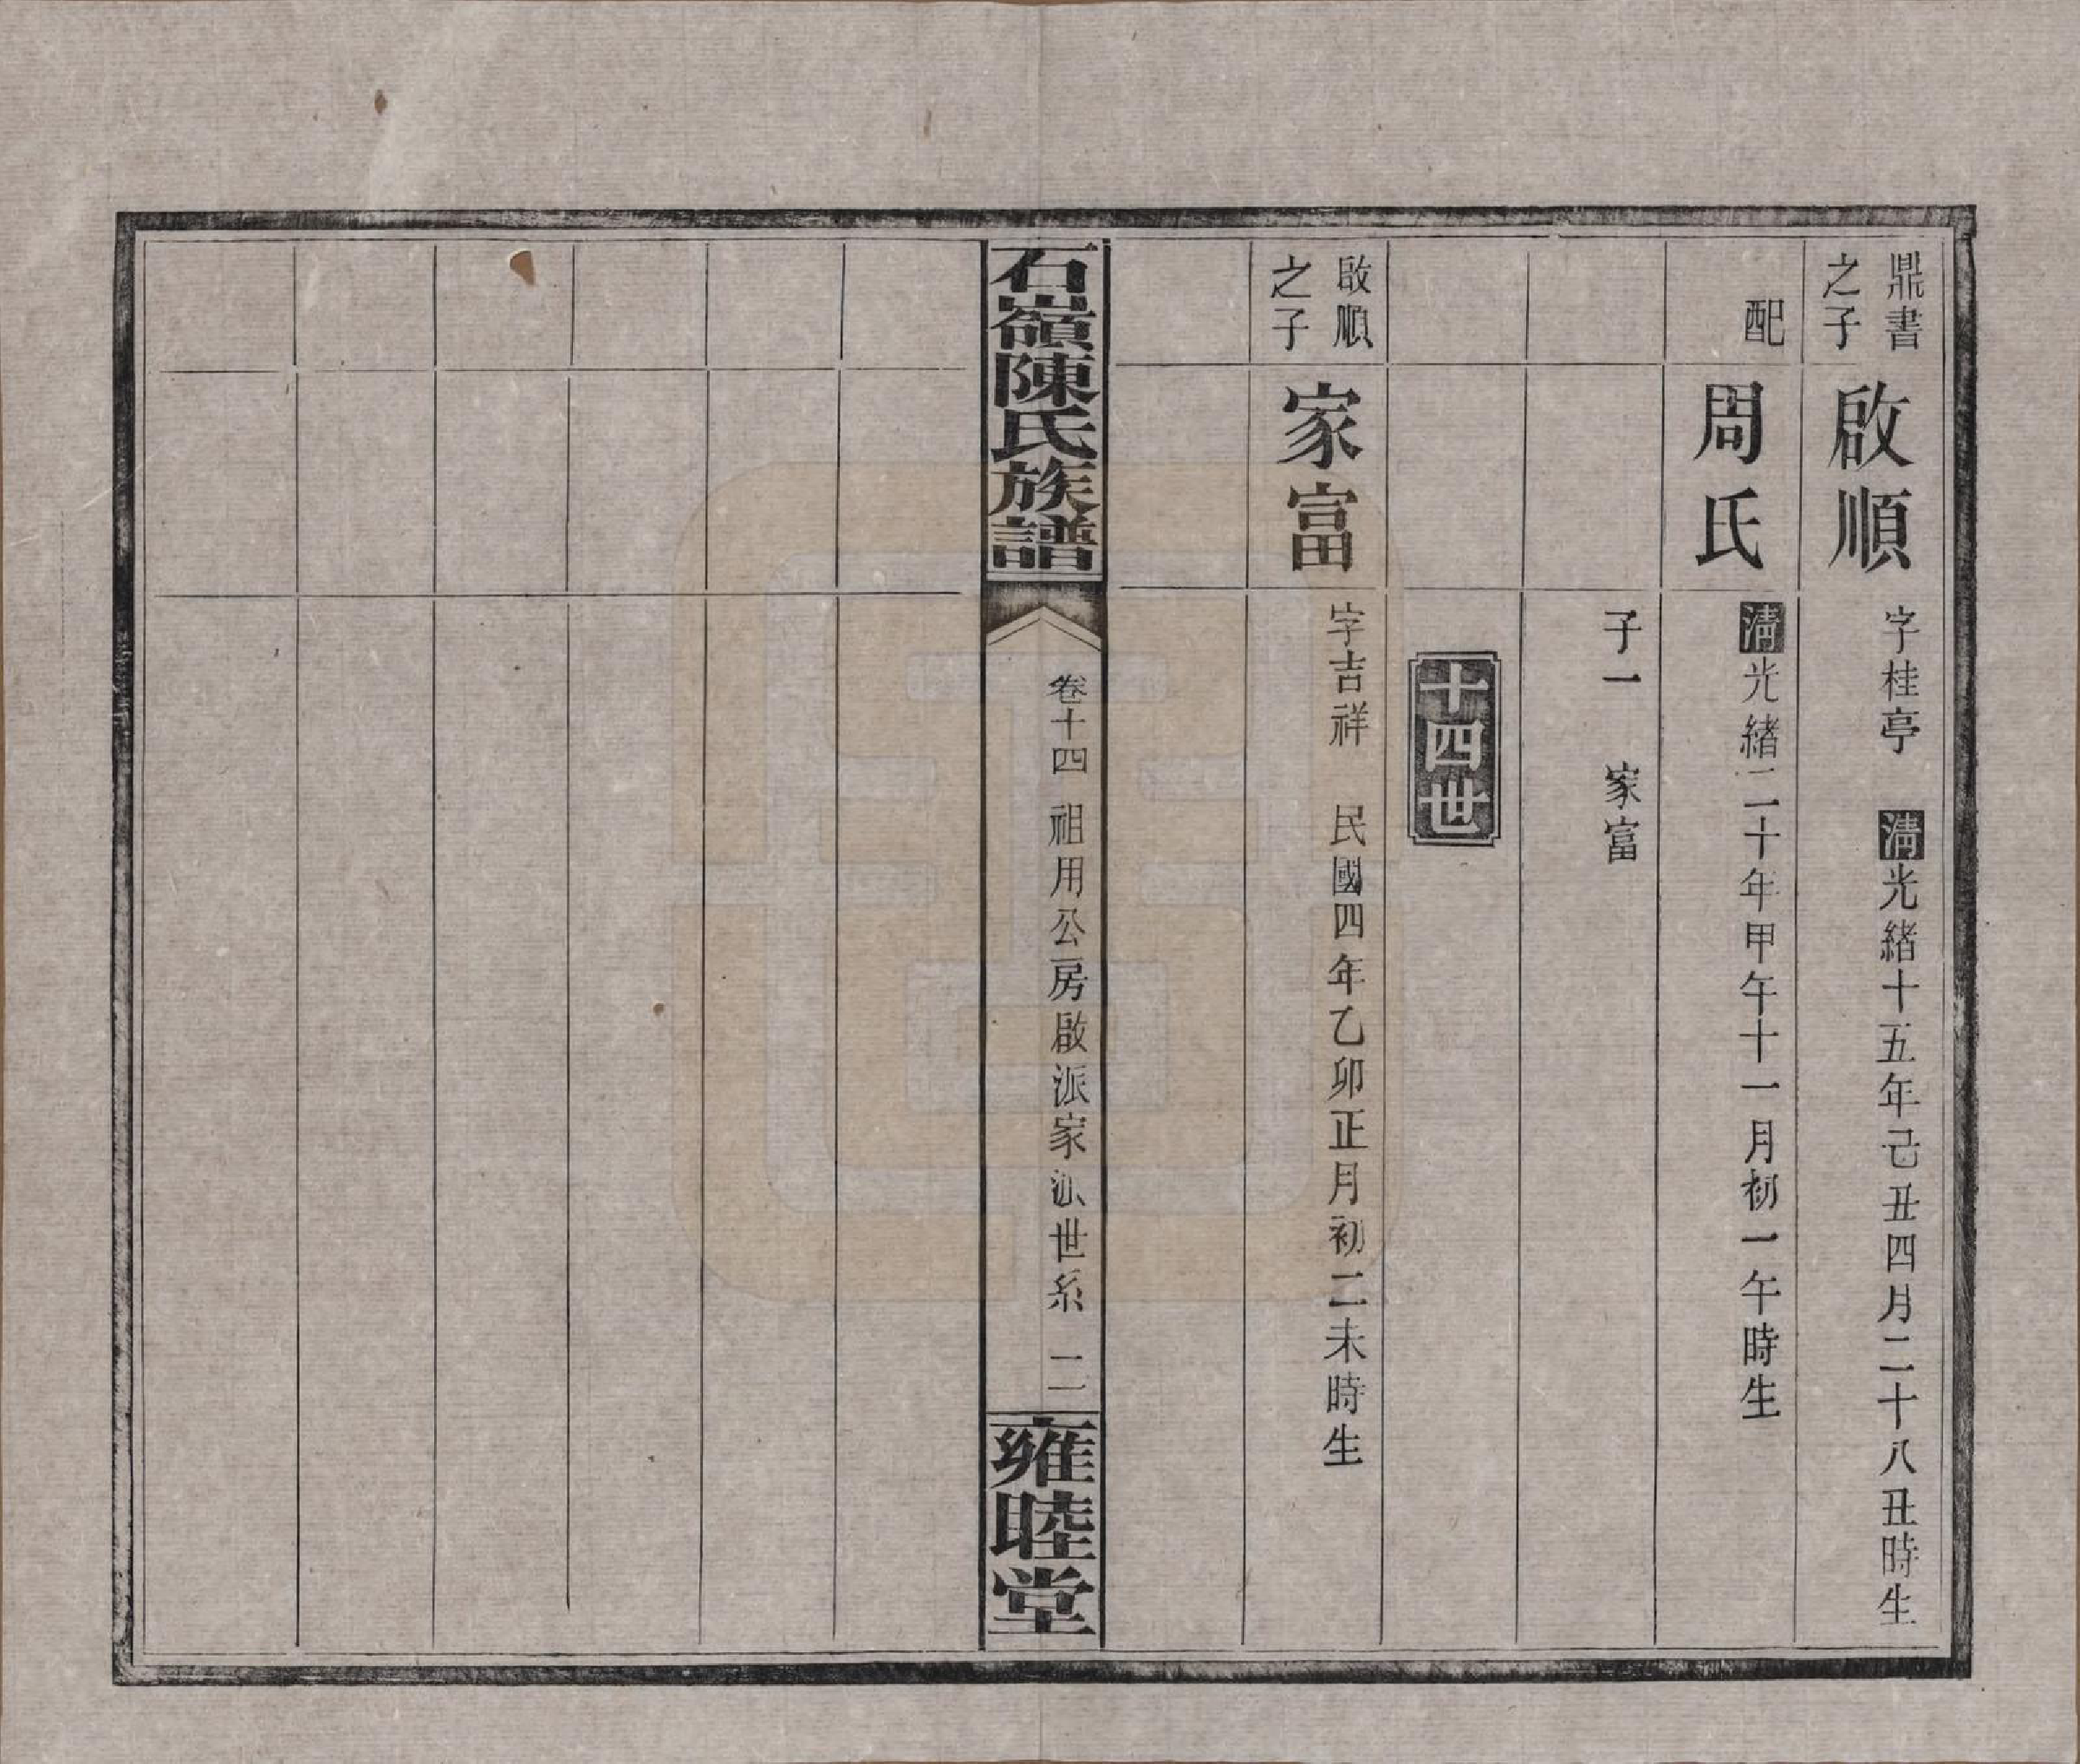 鼎書
之子
啟順
字桂亭 清光緒十五年己丑四月二十八丑時生
配
周氏
清光緒二十年甲午十一月初一午時生
子一 家富
十四世
啟順
之子
家富
字吉祥 民國四年乙卯正月初二未時生
石嶺陳氏族譜
卷十四 祖用公房啟派家派世系 二
雍睦堂